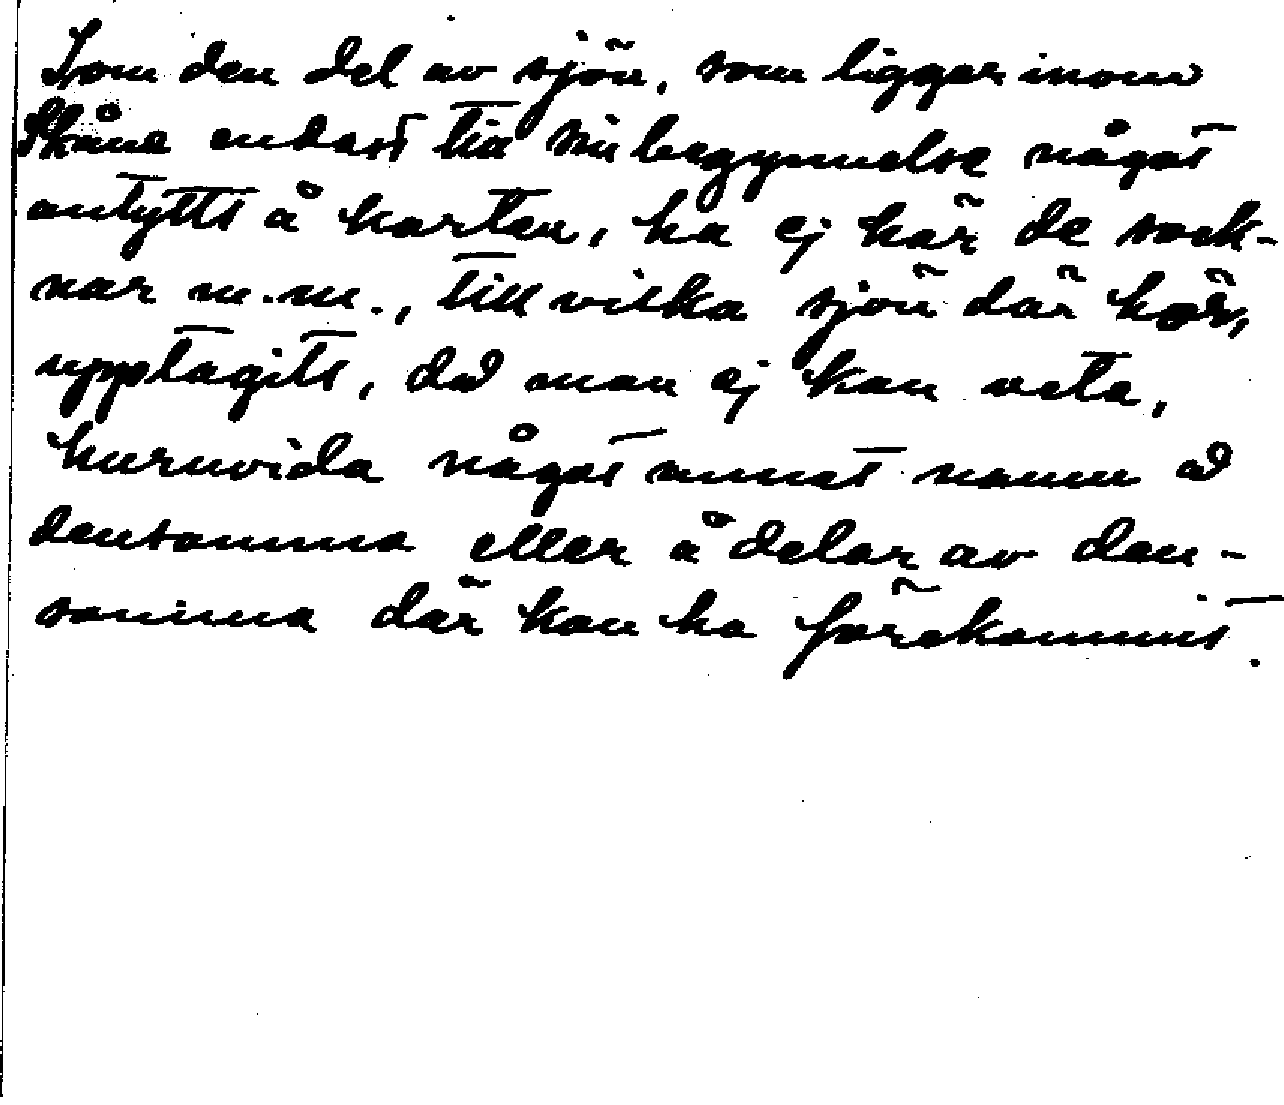 Som den del av sjön, som ligger inom
Skåne endast till sin begynnelse något
antytts å kartan, ha ej här de sock-
nar m.m., till vilka sjön där hör,
upptagits, då man ej kan veta,
huruvida något annat namn å
densamma eller å delar av den-
samma där kan ha förekommit.